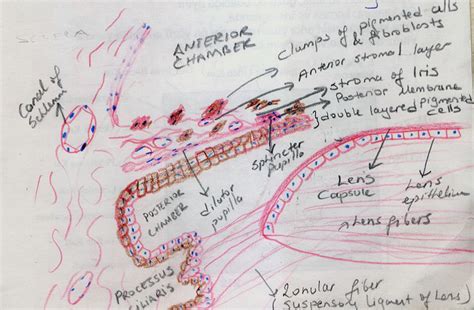 SCLERA
ANTERIOR
CHAMBER
Clumps of pigmented cells
& fibroblasts
Anterior stromal layer
stroma of Iris
Posterior Membrane
double layered pigmented
cells
Canal of
Schlemm
Sphincter
pupillo
dilator
pupillo
POSTERIOR
CHAMBER
Lens
Capsule
Lens
epithelium
Lens fibers
PROCESSUS
CILIARIS
Zonular fiber
(suspensory ligment of Lens)